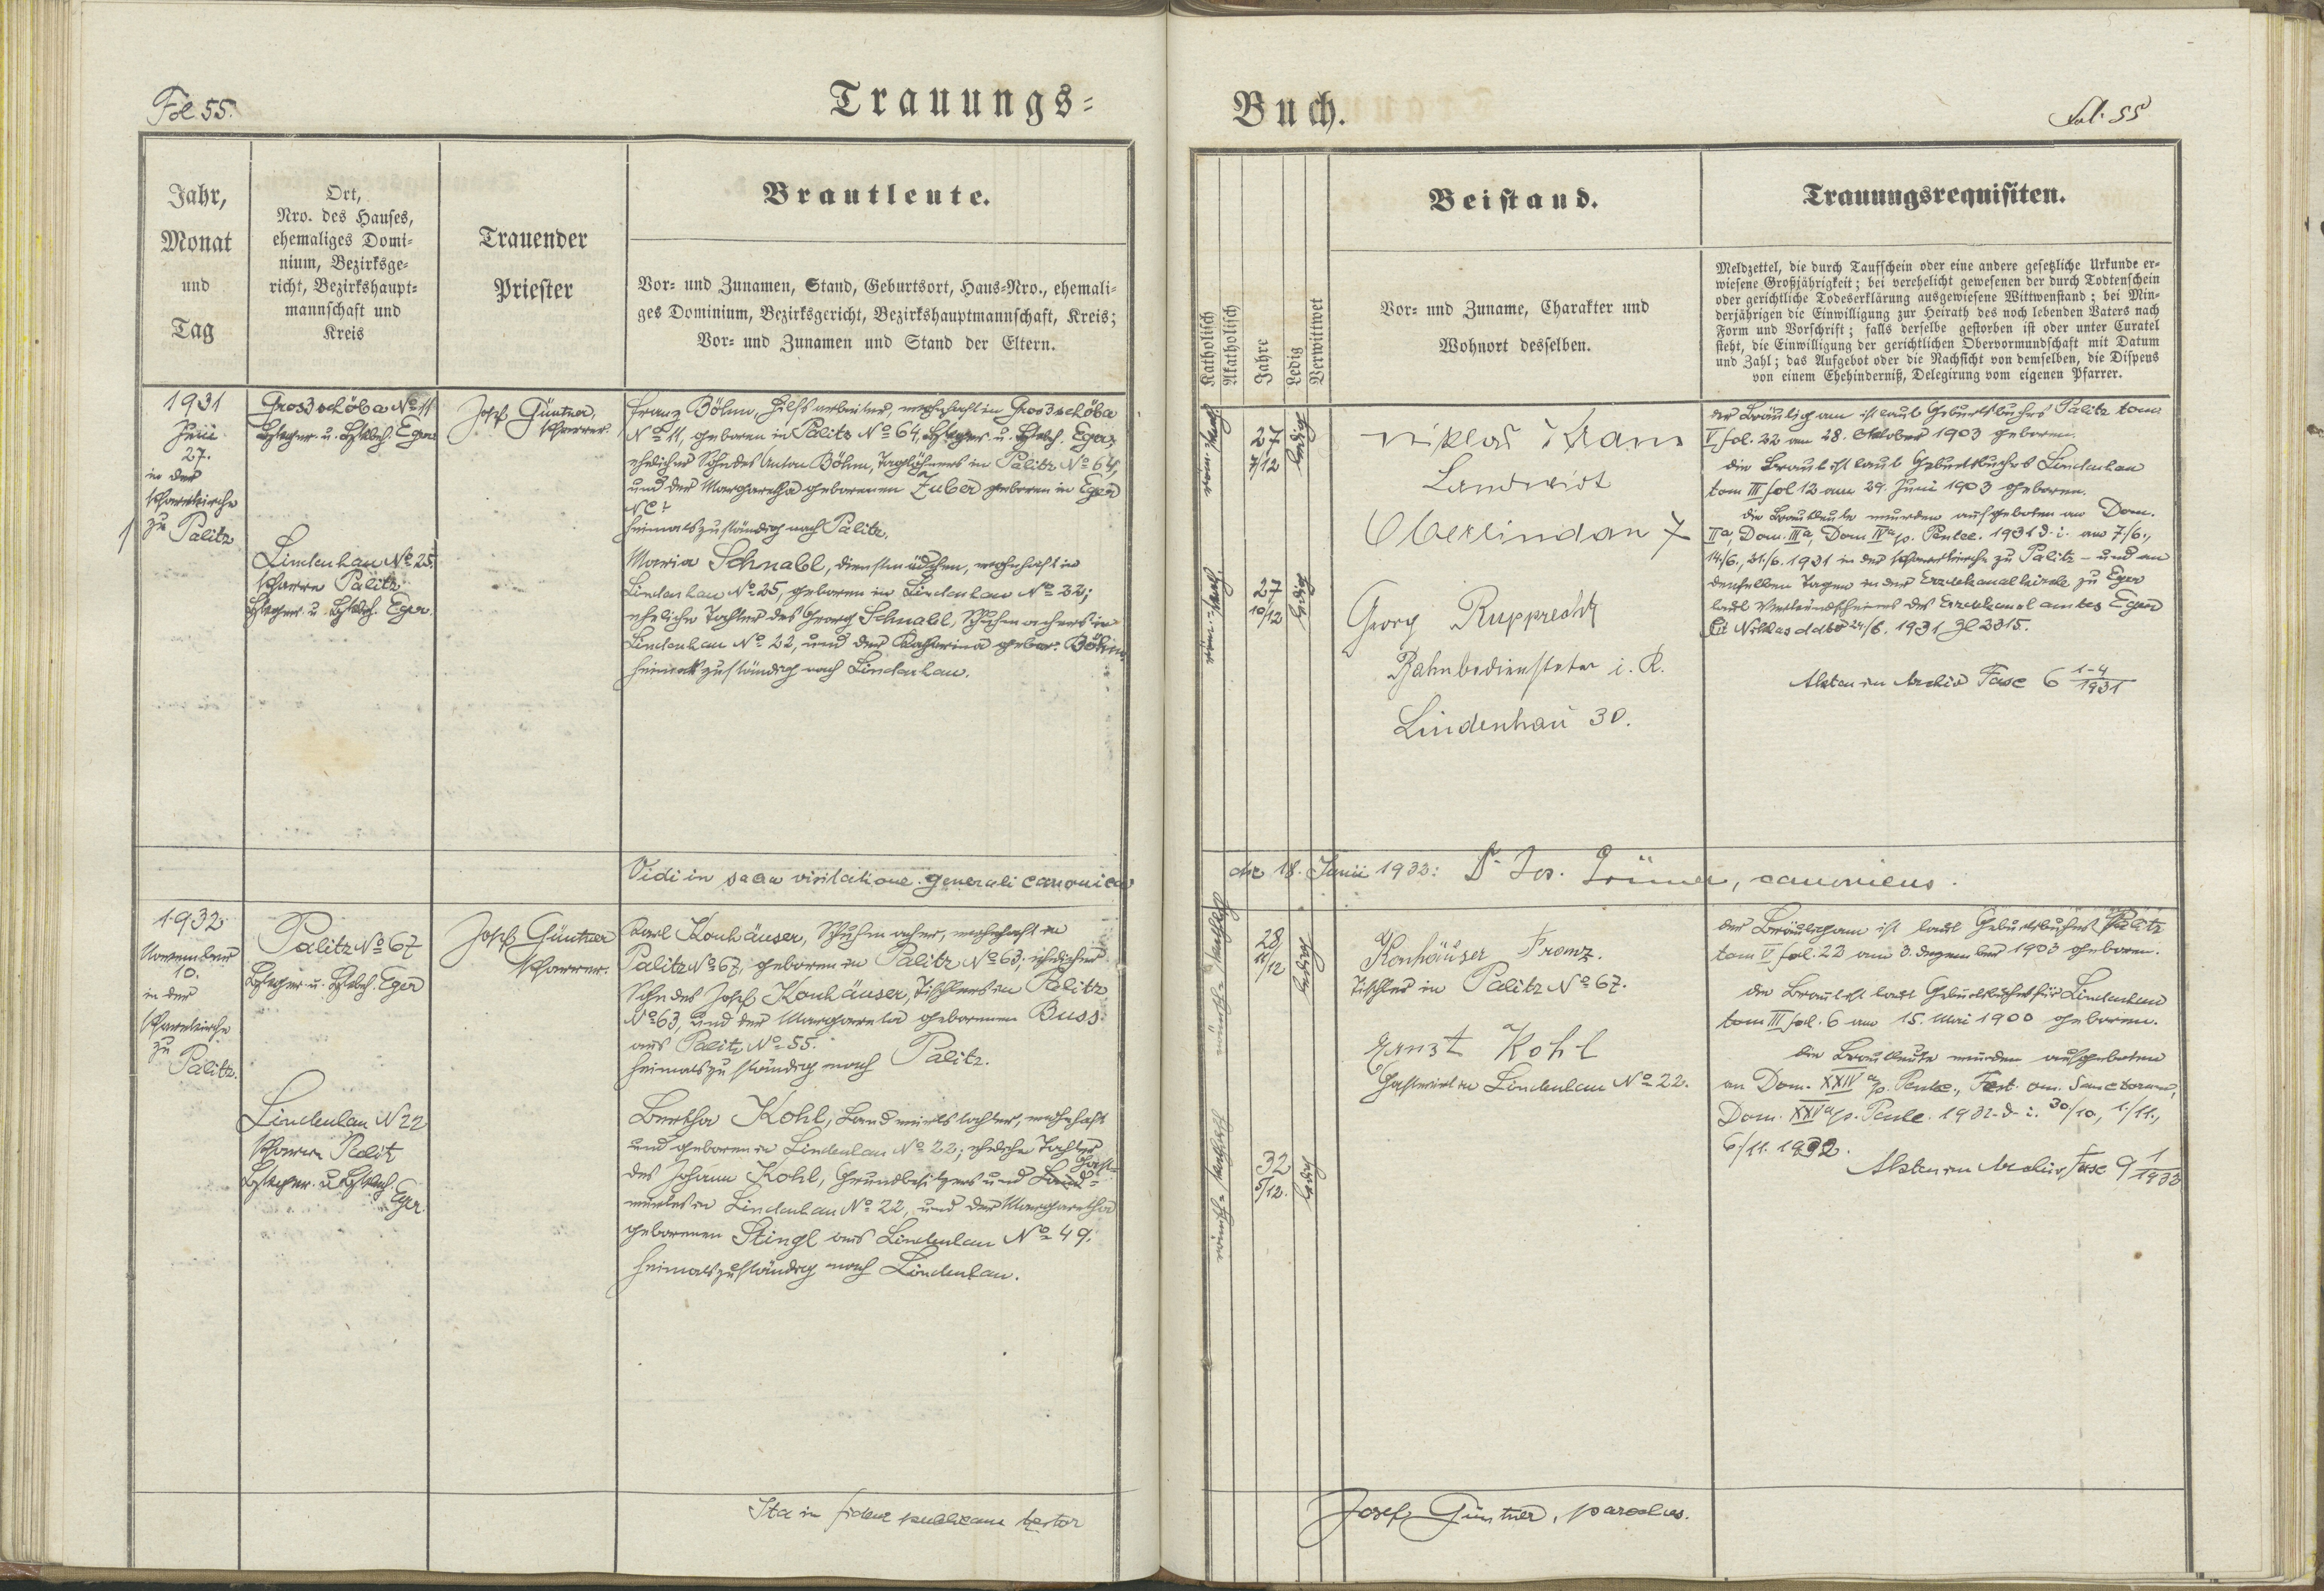 Fol. 55.
Trauungs-
Jahr,
Monat
und
Tag
Ort,
Nro. des Hauses,
ehemaliges Domi-
nium, Bezirksge-
richt, Bezirkshaupt-
mannschaft und
Kreis
Trauender
Priester
Brautleute.
Vor- und Zunamen, Stand, Geburtsort, Haus-Nro., ehemali-
ges Dominium, Bezirksgericht, Bezirkshauptmannschaft, Kreis;
Vor- und Zunamen und Stand der Eltern.
1931
Juni
27.
in der
Pfarrkirche
zu Palitz
1
Grosschöba No 11
Eger
Lindenhau No 25,
Pfarre Palitz
Eger.
Josef Güntner,
Pfarrer.
Franz Böhm, Hilfsarbeiter, wohnhaft in Grosschöba
No 11, geboren in Palitz No 64, Eger,
ehelicher Sohn des Anton Böhm, Taglöhners in Palitz No 64,
und der Margaretha geborenen Zuber geboren in Eger
No ?
heimatszuständig nach Palitz.
Maria Schnabl, Dienstmädchen, wohnhaft in
Lindenhau No 25, geboren in Lindenhau No 22;
eheliche Tochter des Georg Schnabl, Schuhmachers in
Lindenhau No 22, und der Katharina gebor. Böhm
heimatszuständig nach Lindenhau.
Vidi in sacra visitatione generali canonica
1932
November
10.
in der
Pfarrkirche
zu
Palitz.
Palitz No 67
Eger
Lindenhau N 22
Pfarre Palitz
Eger
Josef Güntner
Pfarrer.
Karl Konhäuser, Schuhmacher, wohnhaft in
Palitz No 67, geboren in Palitz No 63, ehelicher
Sohn des Josef Konhäuser, Tischlers in Palitz
No 63, und der Margareta geborenen Buss
aus Palitz No 55.
heimatszuständig nach Palitz.
Bertha Kohl, Landwirtstochter, wohnhaft
und geboren in Lindenhau No 22; eheliche Tochter
des Johann Kohl, Grundbesitzers und Gast-
wirtes in Lindenhau No 22, und der Margaretha
geborenen Stingl aus Lindenhau No 49.
heimatszuständig nach Lindenhau.
Ita in fidem publicam testor
Buch.
Fol. 55
Katholisch
Akatholisch
Jahre
Ledig
Verwittwet
Beistand.
Vor- und Zuname, Charakter und
Wohnort desselben.
Trauungsrequisiten.
Meldzettel, die durch Taufschein oder eine andere gesetzliche Urkunde er-
wiesene Großjährigkeit; bei verehelicht gewesenen der durch Todtenschein
oder gerichtliche Todeserklärung ausgewiesene Wittwenstand; bei Min-
derjährigen die Einwilligung zur Heirath des noch lebenden Vaters nach
Form und Vorschrift; falls derselbe gestorben ist oder unter Curatel
steht, die Einwilligung der gerichtlichen Obervormundschaft mit Datum
und Zahl; das Aufgebot oder die Nachsicht von demselben, die Dispens
von einem Ehehinderniß, Delegirung vom eigenen Pfarrer.
röm.-kath.
27
7/12
ledig
röm.-kath.
27
10/12
ledig
Niklas
Landwirt
Oberlindau 7
Georg Rupprecht
Bahnbediensteter i. R.
Lindenhau 30.
Der Bräutigam ist laut Geburtsbuches Palitz tom
V fol. 22 am 28. Oktober 1903 geboren.
Die Braut ist laut Geburtsbuches Lindenhau
tom III fol 12 am 29. Juni 1903 geboren.
Die Brautleute wurden aufgeboten an Dom.
IIa, Dom. IIIa, Dom IVa p. Pentec. 1931 d. i. am 7./6.,
14/6., 21/6. 1931 in der Pfarrkirche zu Palitz – und an
denselben Tagen in der Erzdekanalkirche zu Eger
laut Verkündscheines des Erzdekanalamtes Eger
St. Niklas ddto 24/6. 1931 Zl 2315.
Akten im Archiv Fasc 6 1-4/1931
die 18. Junii 1933: Dr. Jos. , canonicus.
römisch-katholisch
28
11/12
ledig
römisch-katholisch
32
5/12.
ledig
Konhäuser Franz.
Tischler in Palitz No 67.
Ernst Kohl
Gastwirt in Lindenhau No 22.
Der Bräutigam ist laut Geburtsbuches Palitz
tom V fol. 22 am 3. Dezember 1903 geboren.
Die Braut ist laut Geburtsbuches für Lindenhau
tom III fol. 6 am 15. Mai 1900 geboren.
Die Brautleute wurden aufgeboten
an Dom. XXIVa p. Pentec., Fest. om. Sanctorum,
Dom. XXVa p. Pentec. 1932 d. i. 30/10., 1./11.,
6/11. 1932.
Akten im Archiv Fasc 9 1/1932
Josef Güntner, parochus.